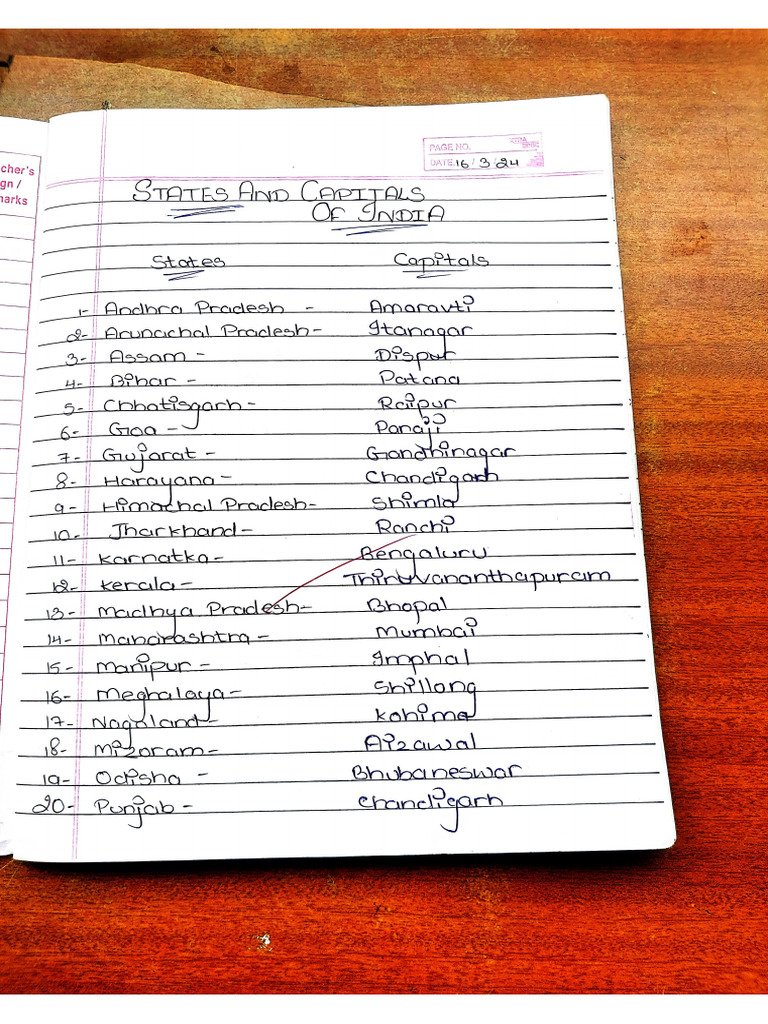 cher's
gn /
narks
PAGE NO.
DATE: 16/3/24
STATES AND CAPITALS
OF INDIA
States Capitals
1- Andhra Pradesh - Amaravti
2- Arunachal Pradesh- Itanagar
3- Assam - Dispur
4- Bihar - Patana
5- Chhatisgarh - Raipur
6- Goa - Panaji
7- Gujarat - Gandhinagar
8- Harayana - Chandigarh
9- Himachal Pradesh- Shimla
10- Jharkhand- Ranchi
11- Karnatka - Bengaluru
12- Kerala- Thiruvananthapuram
13- Madhya Pradesh- Bhopal
14- Maharashtra - Mumbai
15- Manipur - Imphal
16- Meghalaya- Shillong
17- Nagaland- Kohima
18- Mizoram- Aizawal
19- Odisha - Bhubaneswar
20- Punjab - Chandigarh